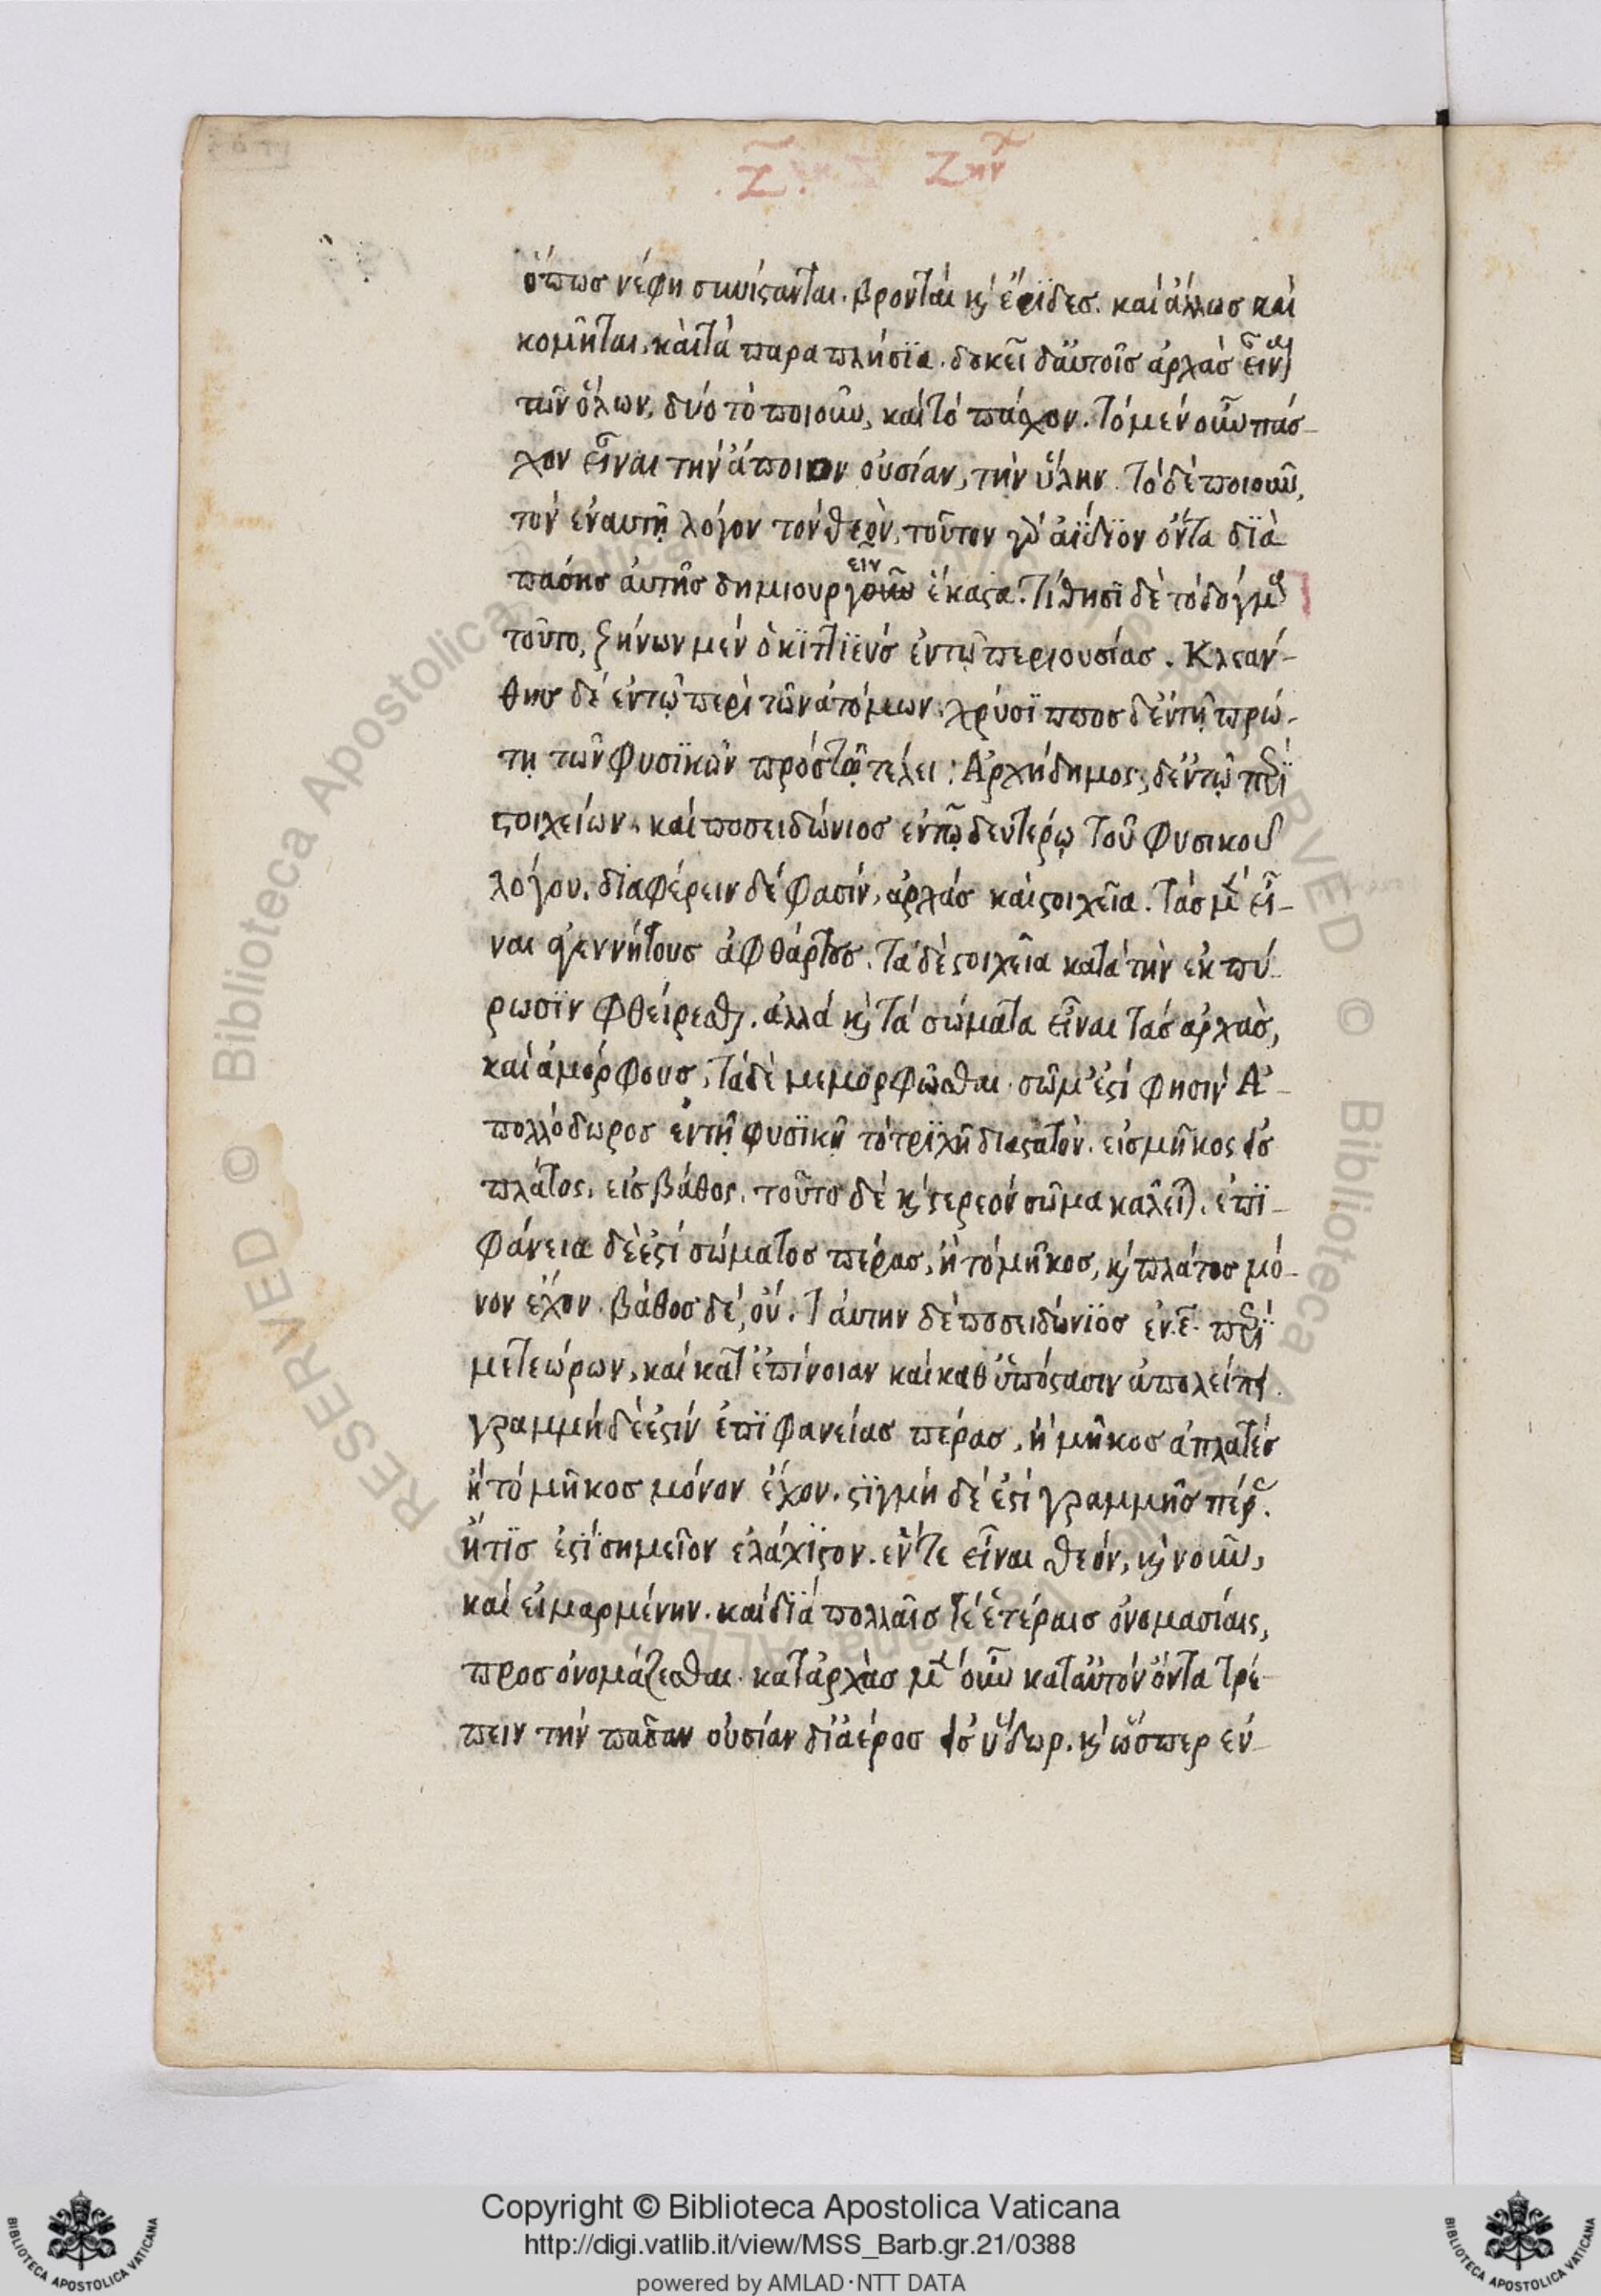 .Ζ̃. Ζήν
ὅπως νέφη συνίςανται. βρονταὶ κ̀ ἔριδες. καὶ ἄλλως καὶ
κομῆται, καὶ τὰ παραπλήσϊα. δοκεῖ δ' αὐτοῖς ἀρχὰς εἶναι
τῶν ὅλων, δύο τὸ ποιοῦν, καὶ τὸ πάσχον. τὸ μὲν οὖν πάσ-
χον εἶναι τὴν ἄποιον οὐσίαν, τὴν ὕλην. τὸ δὲ ποιοῦν,
τὸν ἐν αυτῇ λόγον τὸν θεὸν, τοῦτον γὰρ ἀΐδϊον ὄντα δϊὰ
ειν
πάσης ἀυτῆς δημιουργοῦν ἕκαςα. Τίθησϊ δὲ τὸ δόγμα
τοῦτο, ζήνων μὲν ὁ κϊτϊεὺς ἐν τῷ περι ουσίας. Κλεάν-
θης δὲ ἐν τῷ περὶ τῶν ἀτόμων. χρύσϊππος δ' ἐν τῇ πρώ-
τῃ τῶν φυσϊκῶν πρὸς τῷ τέλει: Ἀρχήδημος, δ' ἐν τῷ περὶ
ςοιχείων. καὶ ποσειδώνιος ἐν τῷ δευτέρῳ τοῦ φυσικοῦ
λόγου. δϊαφέρειν δέ φασίν, ἀρχὰς καὶ ςοιχεῖα. τὰς μὲν εἶ-
ναι γεννήτους ἀφθάρτους. τὰ δὲ ςοιχεῖα κατὰ τὴν ἐκπύ-
ρωσϊν φθείρεσθαι. ἀλλὰ κ̀ τὰ σώματα εἶναι τὰς ἀρχὰς,
καὶ ἀμόρφους, τὰ δὲ μεμορφῶσθαι. σῶμ' ἐςί φησιν Ἀ-
πολλόδωρος ἐν τῇ φυσϊκῇ τὸ τρϊχῆ διαςατὸν. εἰς μῆκος εἰς
πλάτος, εἰς βάθος. τοῦτο δὲ κ̀ ςερεὸν σῶμα καλεῖται. ἐπϊ-
φάνεια δὲ ἐςὶ σώματος πέρας, ἢ τὸ μῆκος, κ̀ πλάτος μό-
νον ἔχον. βάθος δὲ, οὔ. Ταύτην δὲ ποσειδώνϊος ἐν.ε̄. περὶ
μετεώρων, καὶ κατ' ἐπίνοιαν καὶ καθ' ὑπόςασιν ἀπολείπει.
γραμμὴ δὲ ἐςὶν ἐπϊφανείας πέρας, ἢ μῆκος ἀπλατὲς
ἢ τὸ μῆκος μόνον ἔχον. ςϊγμὴ δὲ ἐςὶ γραμμῆς πέρας.
ἥτϊς ἐςὶ σημεῖον ἐλάχϊςον. ἕν τε εἶναι θεὸν, κ̀ νοῦν,
καὶ εἱμαρμένην. καὶ δϊὰ πολλαῖς τὲ ἑτέραις ὀνομασίαις,
προσονομάζεσθαι. κατ' ἀρχὰς μὲν οὖν κατ' αὐτὸν ὄντα τρέ-
πειν τὴν πᾶσαν οὐσίαν δϊ' ἀέρος εἰς ὕδωρ. κ̀ ὥσπερ ἐν
Copyright © Biblioteca Apostolica Vaticana
http://digi.vatlib.it/view/MSS_Barb.gr.21/0388
powered by AMLAD·NTT DATA